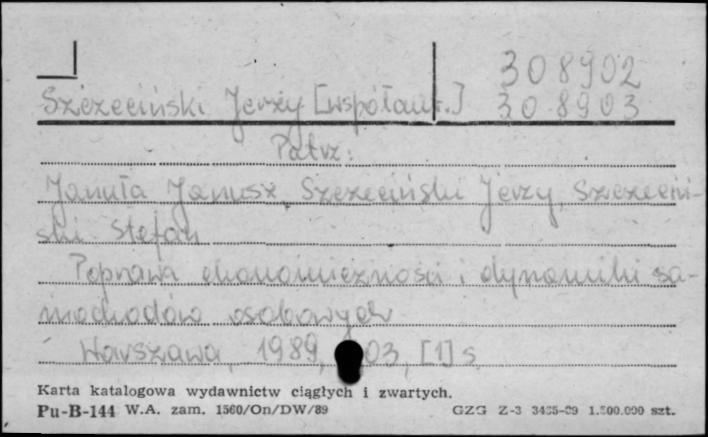 308902
Szczeciński Jerzy [współaut.] 308903
Patrz:
Januła Janusz, Szczeciński Jerzy, Szczeciń-
ski Stefan
Poprawa ekonomiczności i dynamiki sa-
mochodów osobowych
Warszawa, 1989, 03, [1] s.
Karta katalogowa wydawnictw ciągłych i zwartych.
Pu-B-144 W.A. zam. 1560/On/DW/89 GZG Z-3 3435-89 1.500.000 szt.